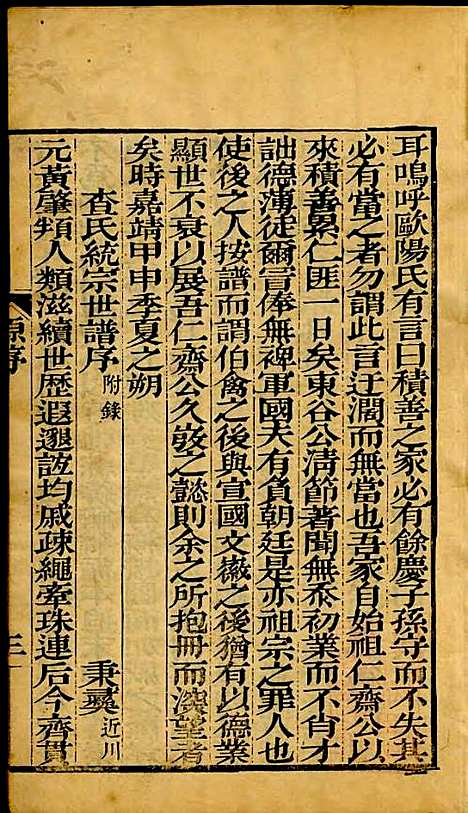 耳嗚呼歐陽氏有言曰積善之家必有餘慶子孫守而不失其
必有當之者勿謂此言迂濶而無當也吾家自始祖仁齋公以
來積善累仁匪一日矣東谷公淸節著聞無忝初業而不肖才
詘德薄徒爾冒俸無裨軍國大有負朝廷是亦祖宗之罪人也
使後之人按譜而謂伯禽之後與宣國文徽之後猶有以德業
顯世不衰以展吾仁齋公久敛之懿則余之所抱冊而深望者
矣時嘉靖甲申季夏之朔
查氏統宗世譜序 附錄 秉彞 近川
元黃肇𩔖人類滋續世歴遐邈詎均戚疎繩牽珠連后今齊貫
原序
三